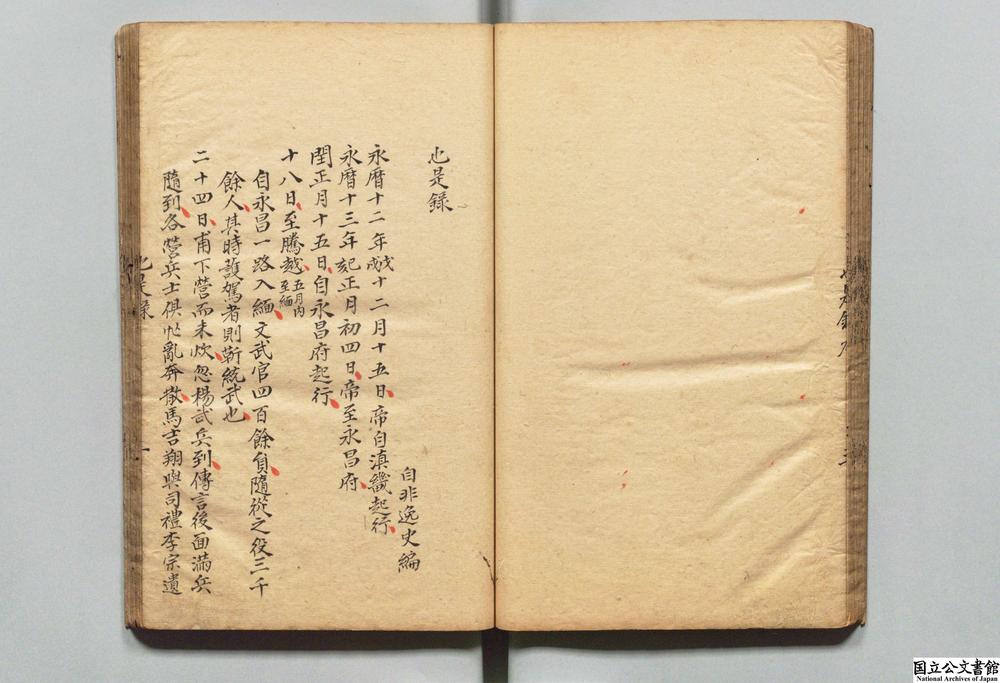 也是録
自非逸史編
永曆十二年戊戌十二月十五日帝自滇畿起行
永曆十三年己亥正月初四日帝至永昌府
閏正月十五日自永昌府起行
十八日至騰越五月内至緬
自永昌一路入緬文武官四百餘負隨從之役三千
餘人其時護駕者則靳統武也
二十四日甫下營而未炊忽楊武兵到傳言後面滿兵
隨到各營兵士俱忙亂奔散馬吉翔與司禮李宗遺
也是録
一
国立公文書館
National Archives of Japan